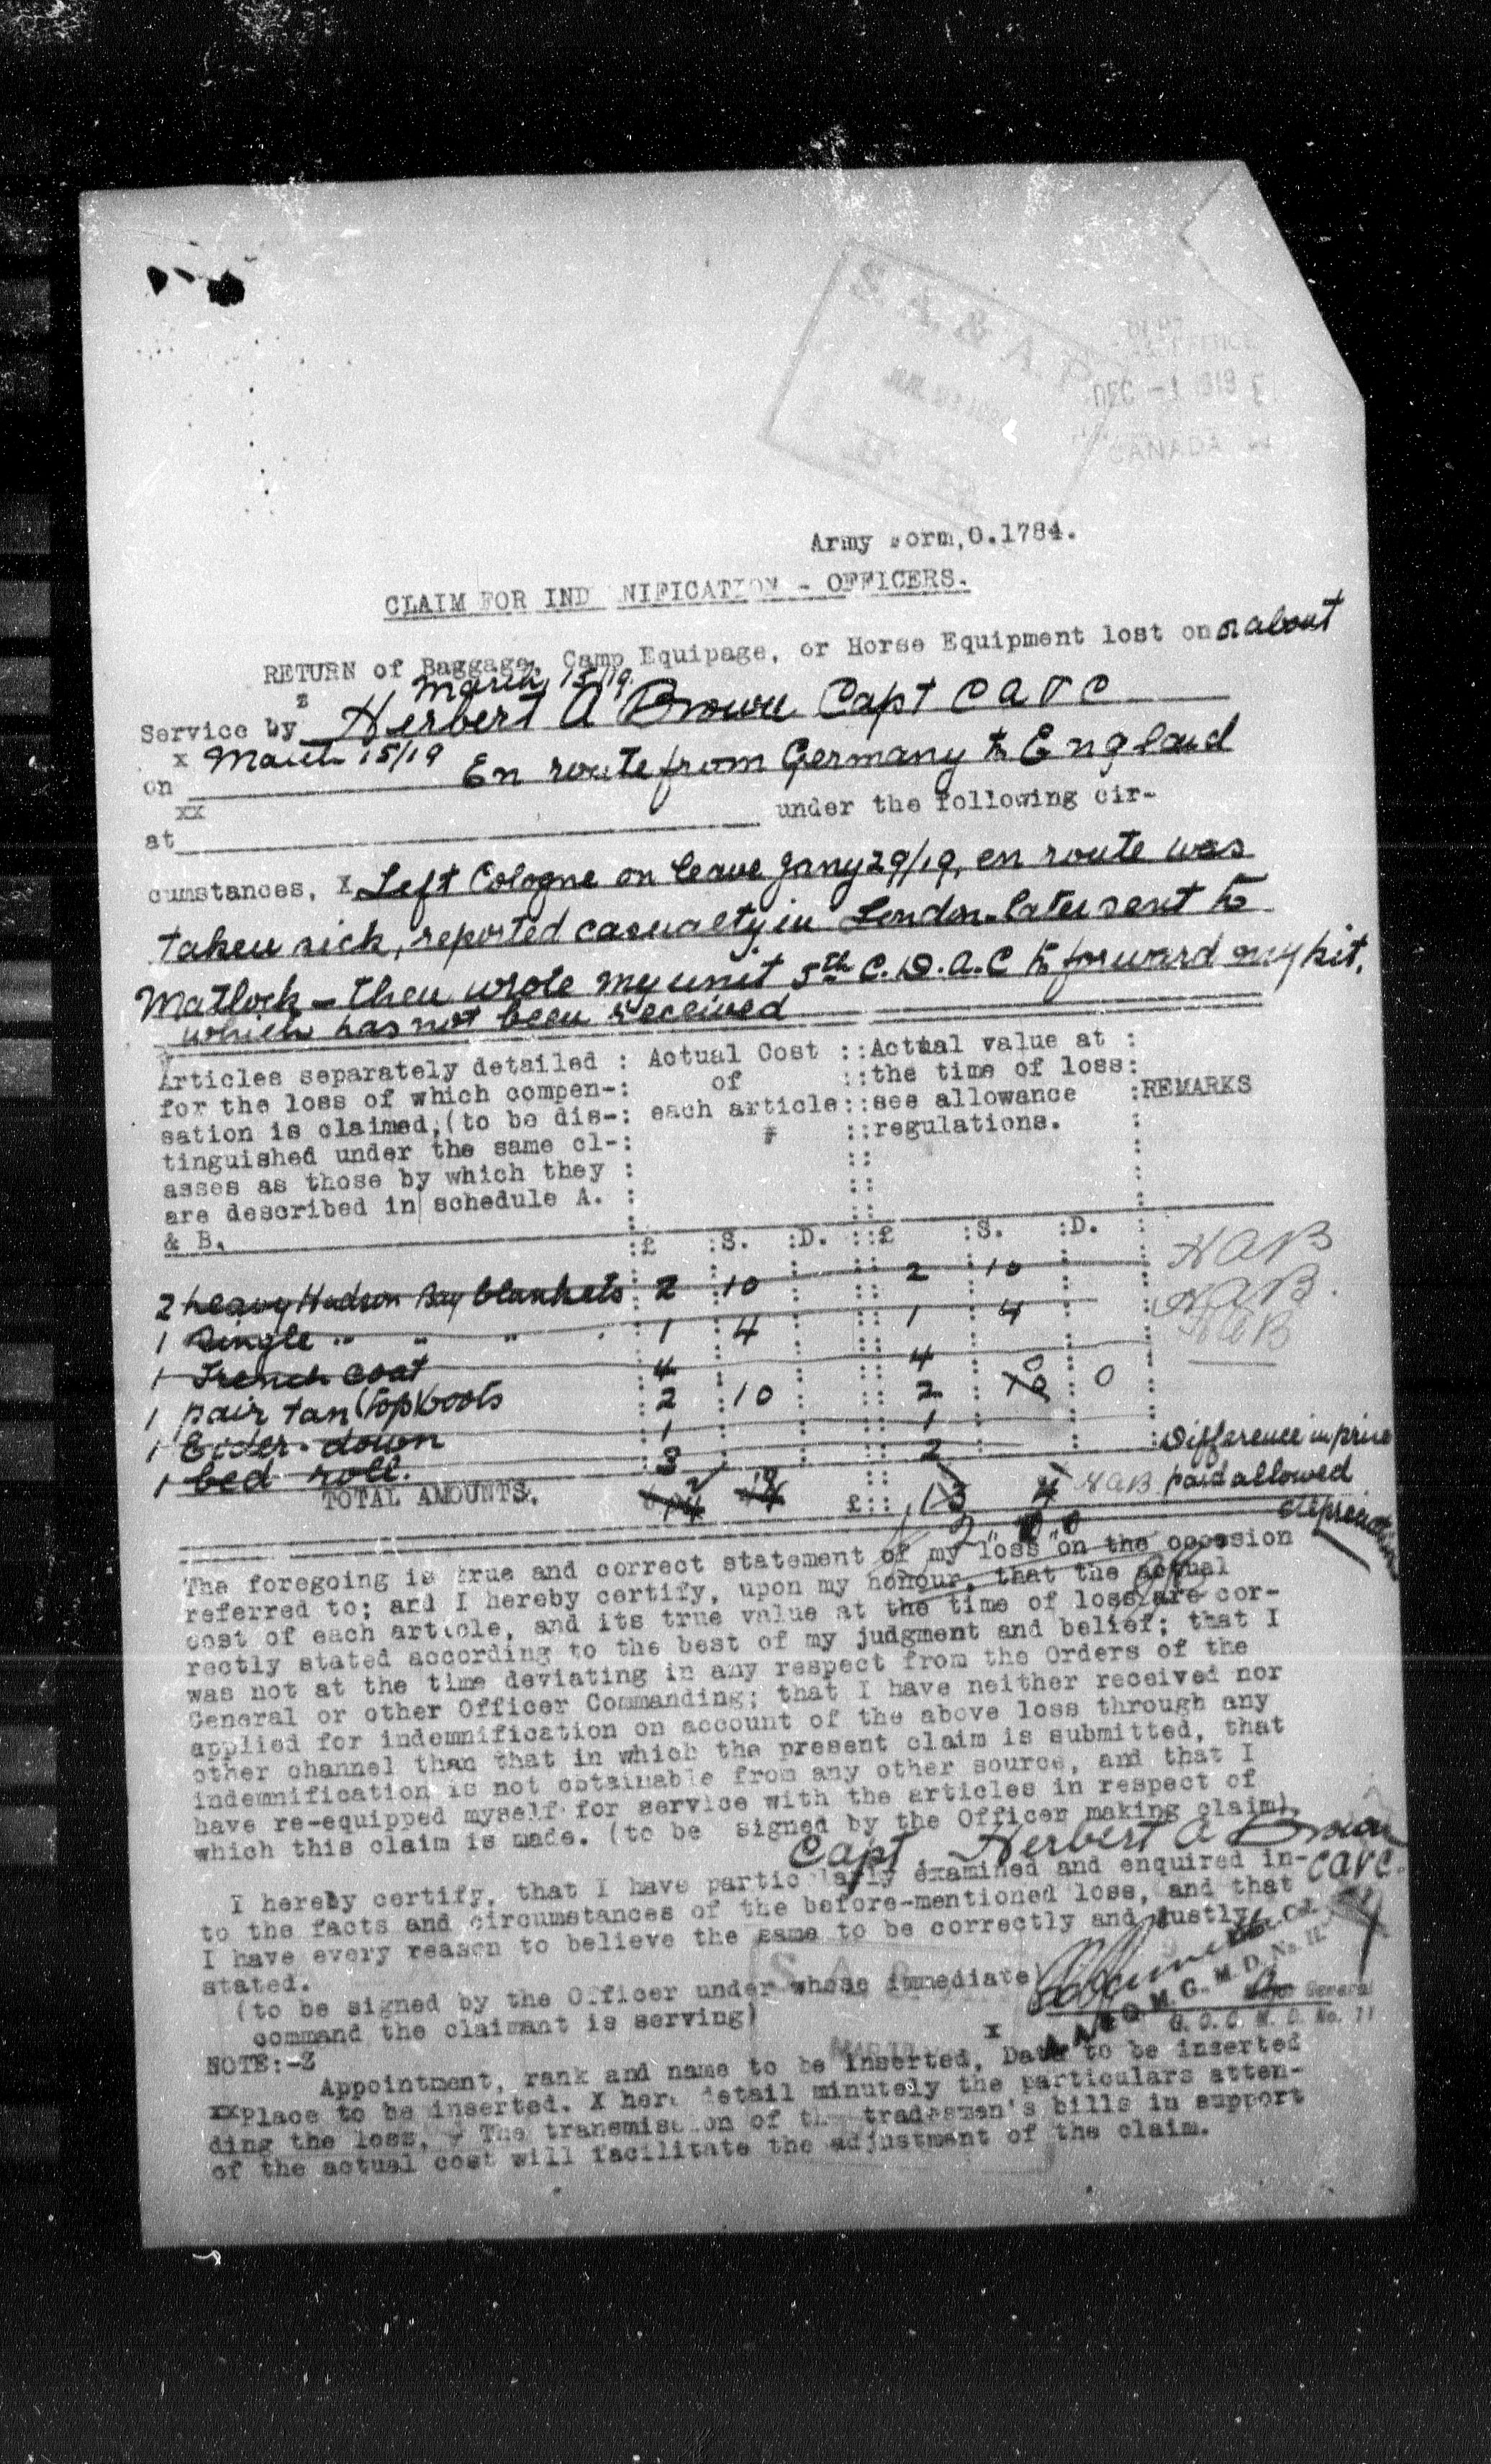 S.A. & A.P.
DEC -1 1919
CANADA
Army Form, O.1784.
CLAIM FOR IND NIFICATION - OFFICERS.
RETURN of Baggage, Camp Equipage, or Horse Equipment lost on or about
March 15/19.
z
Service by Herbert A Brown Capt C A V C
x
on March 15/19 En route from Germany to England
xx
at under the following cir-
cumstances, X Left Cologne on leave Jany 29/19, en route was
taken sick, reported casualty in London. later sent to
Matlock - then wrote my unit 5th C.D.A.C to forward my kit,
which has not been received
Articles separately detailed : Actual Cost :: Actual value at :
for the loss of which compen-: of :: the time of loss:
sation is claimed, (to be dis-: each article:: see allowance :REMARKS
tinguished under the same cl-: :: regulations. :
asses as those by which they :
are described in schedule A. :
& B. :£ :S. :D. ::£ :S. :D. :
2 heavy Hudson Bay blankets 2 10 2 10 HAB
1 Single " " " 1 4 1 4 HAB.
1 Trench coat 4 4 HAB
1 pair tan (top) boots 2 10 2 10 0 0
1 Eider-down 1 1
1 bed roll. 3 2 Difference in price
TOTAL AMOUNTS. £:: 13 4 HAB paid allowed
depreciation
2 " 0 " 0
The foregoing is true and correct statement of my loss on the occasion
referred to; and I hereby certify, upon my honour, that the actual
cost of each article, and its true value at the time of loss are cor-
rectly stated according to the best of my judgment and belief; that I
was not at the time deviating in any respect from the Orders of the
General or other Officer Commanding; that I have neither received nor
applied for indemnification on account of the above loss through any
other channel than that in which the present claim is submitted, that
indemnification is not obtainable from any other source, and that I
have re-equipped myself for service with the articles in respect of
which this claim is made. (to be signed by the Officer making claim).
Capt. Herbert A Brown
CAVC.
I hereby certify, that I have particularly examined and enquired in-
to the facts and circumstances of the before-mentioned loss, and that
I have every reason to believe the same to be correctly and justly
stated.
(to be signed by the Officer under whose immediate)
command the claimant is serving)
A.A. & Q.M.G. M.D. No. 11.
General
G.O.C. M.D. No. 11
NOTE:-Z x
Appointment, rank and name to be inserted, Date to be inserted
xxPlace to be inserted. X here detail minutely the particulars atten-
ding the loss, The transmission of the tradesmen's bills in support
of the actual cost will facilitate the adjustment of the claim.